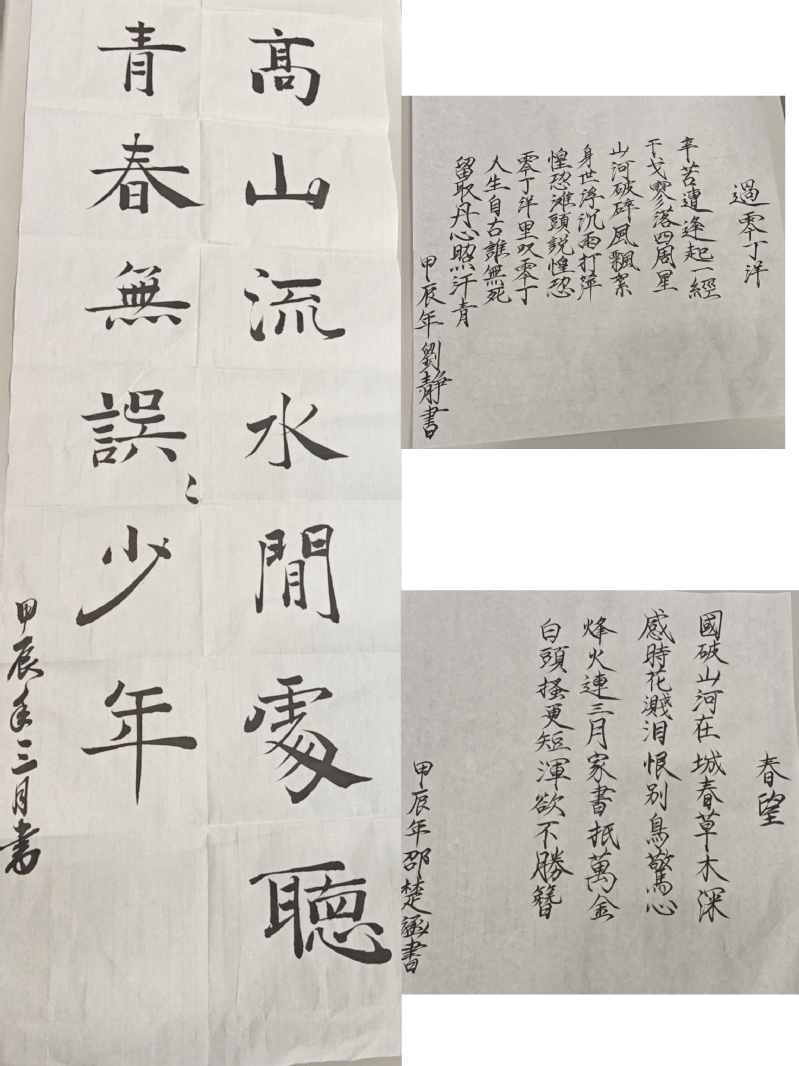 高山流水閒處聽
青春無誤〻少年
甲辰年三月書
過零丁洋
辛苦遭逢起一經
干戈寥落四周星
山河破碎風飄絮
身世浮沉雨打萍
惶恐滩頭説惶恐
零丁洋里叹零丁
人生自古誰無死
留取丹心照汗青
甲辰年劉靜書
春望
國破山河在城春草木深
感時花濺泪恨别鳥驚心
烽火連三月家書抵萬金
白頭搔更短渾欲不勝簪
甲辰年邵楚書